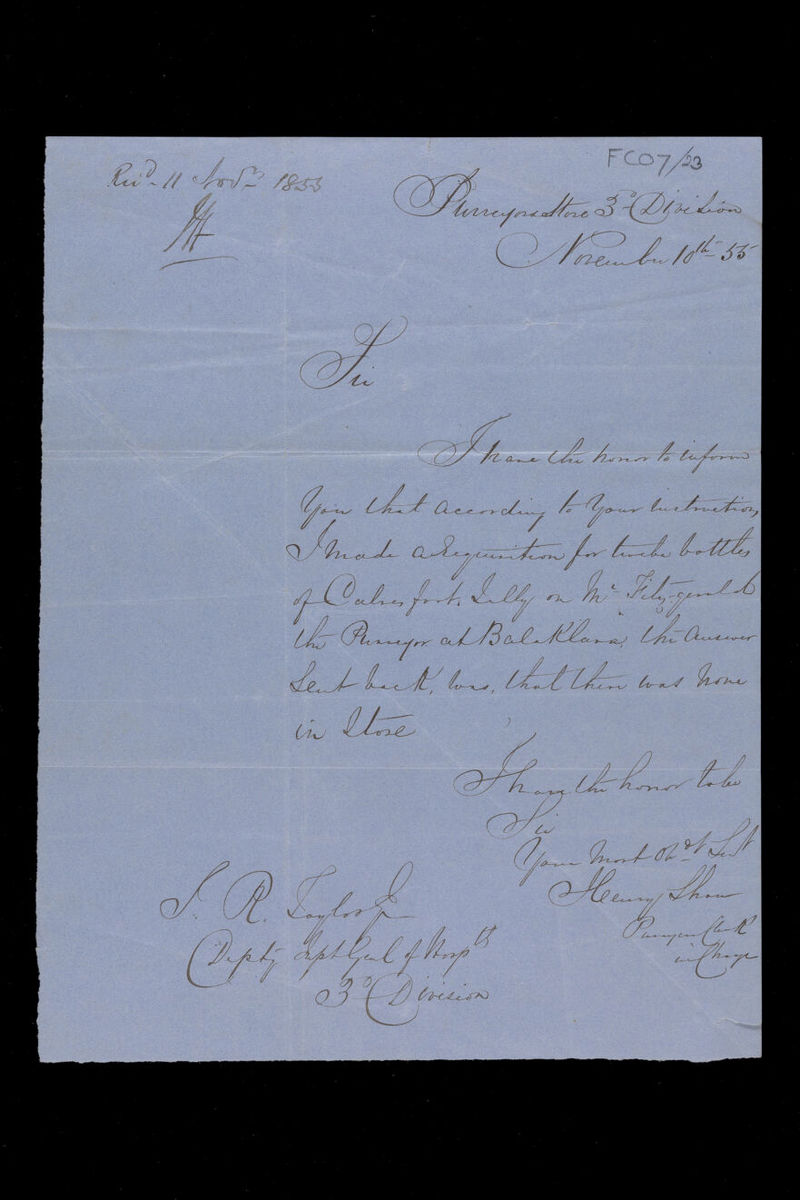 FC07/23
Recd. 11 Novr. 1855
Purveyors Store 3d Division
November 10th 55
Sir
I have the honor to inform
You that according to Your instructions
I made a requisition for twelve bottles
of Calves foot Jelly on Mr Fitz-gerald
the Purveyor at Balaklava, the answer
Sent back, was, that there was None
in Store
I have the honor to be
Sir
Your Most Obdt Sert
Henry Shaw
Purveyors Clerk
in Charge
J. R. Taylor
Depty Inpt Genl of Hospts
3d Division